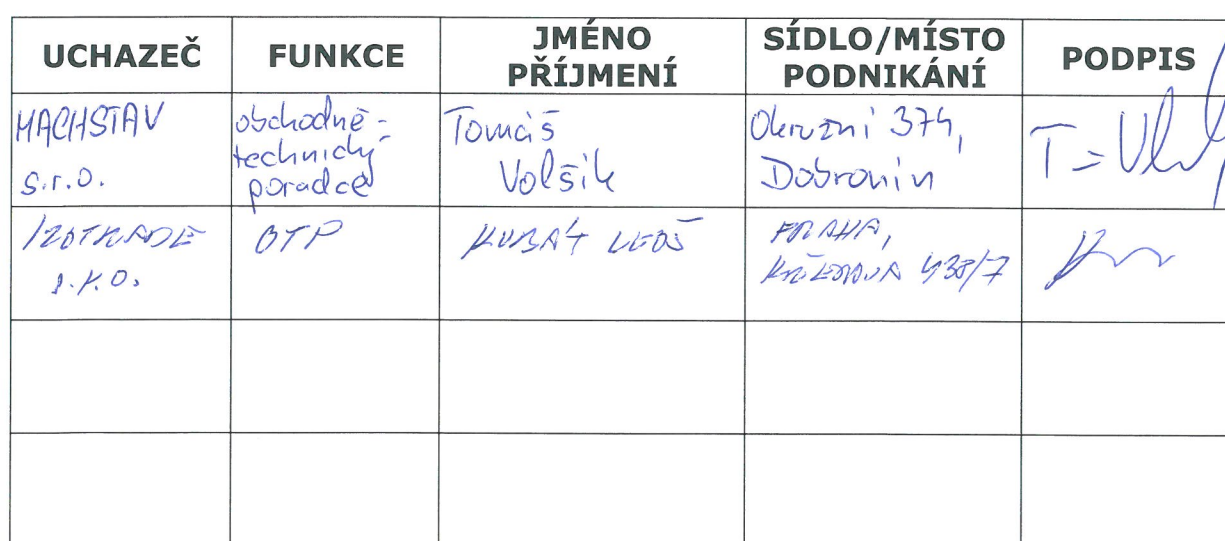 UCHAZEČ FUNKCE JMÉNO PŘÍJMENÍ SÍDLO/MÍSTO PODNIKÁNÍ PODPIS
MACHSTAV
s.r.o.
obchodně-
technický
poradce
Tomáš
Volšík
Okružní 374,
Dobronín
IZOTRADE
s.r.o.
OTP
KUBÁT LEOŠ
PRAHA,
438/7